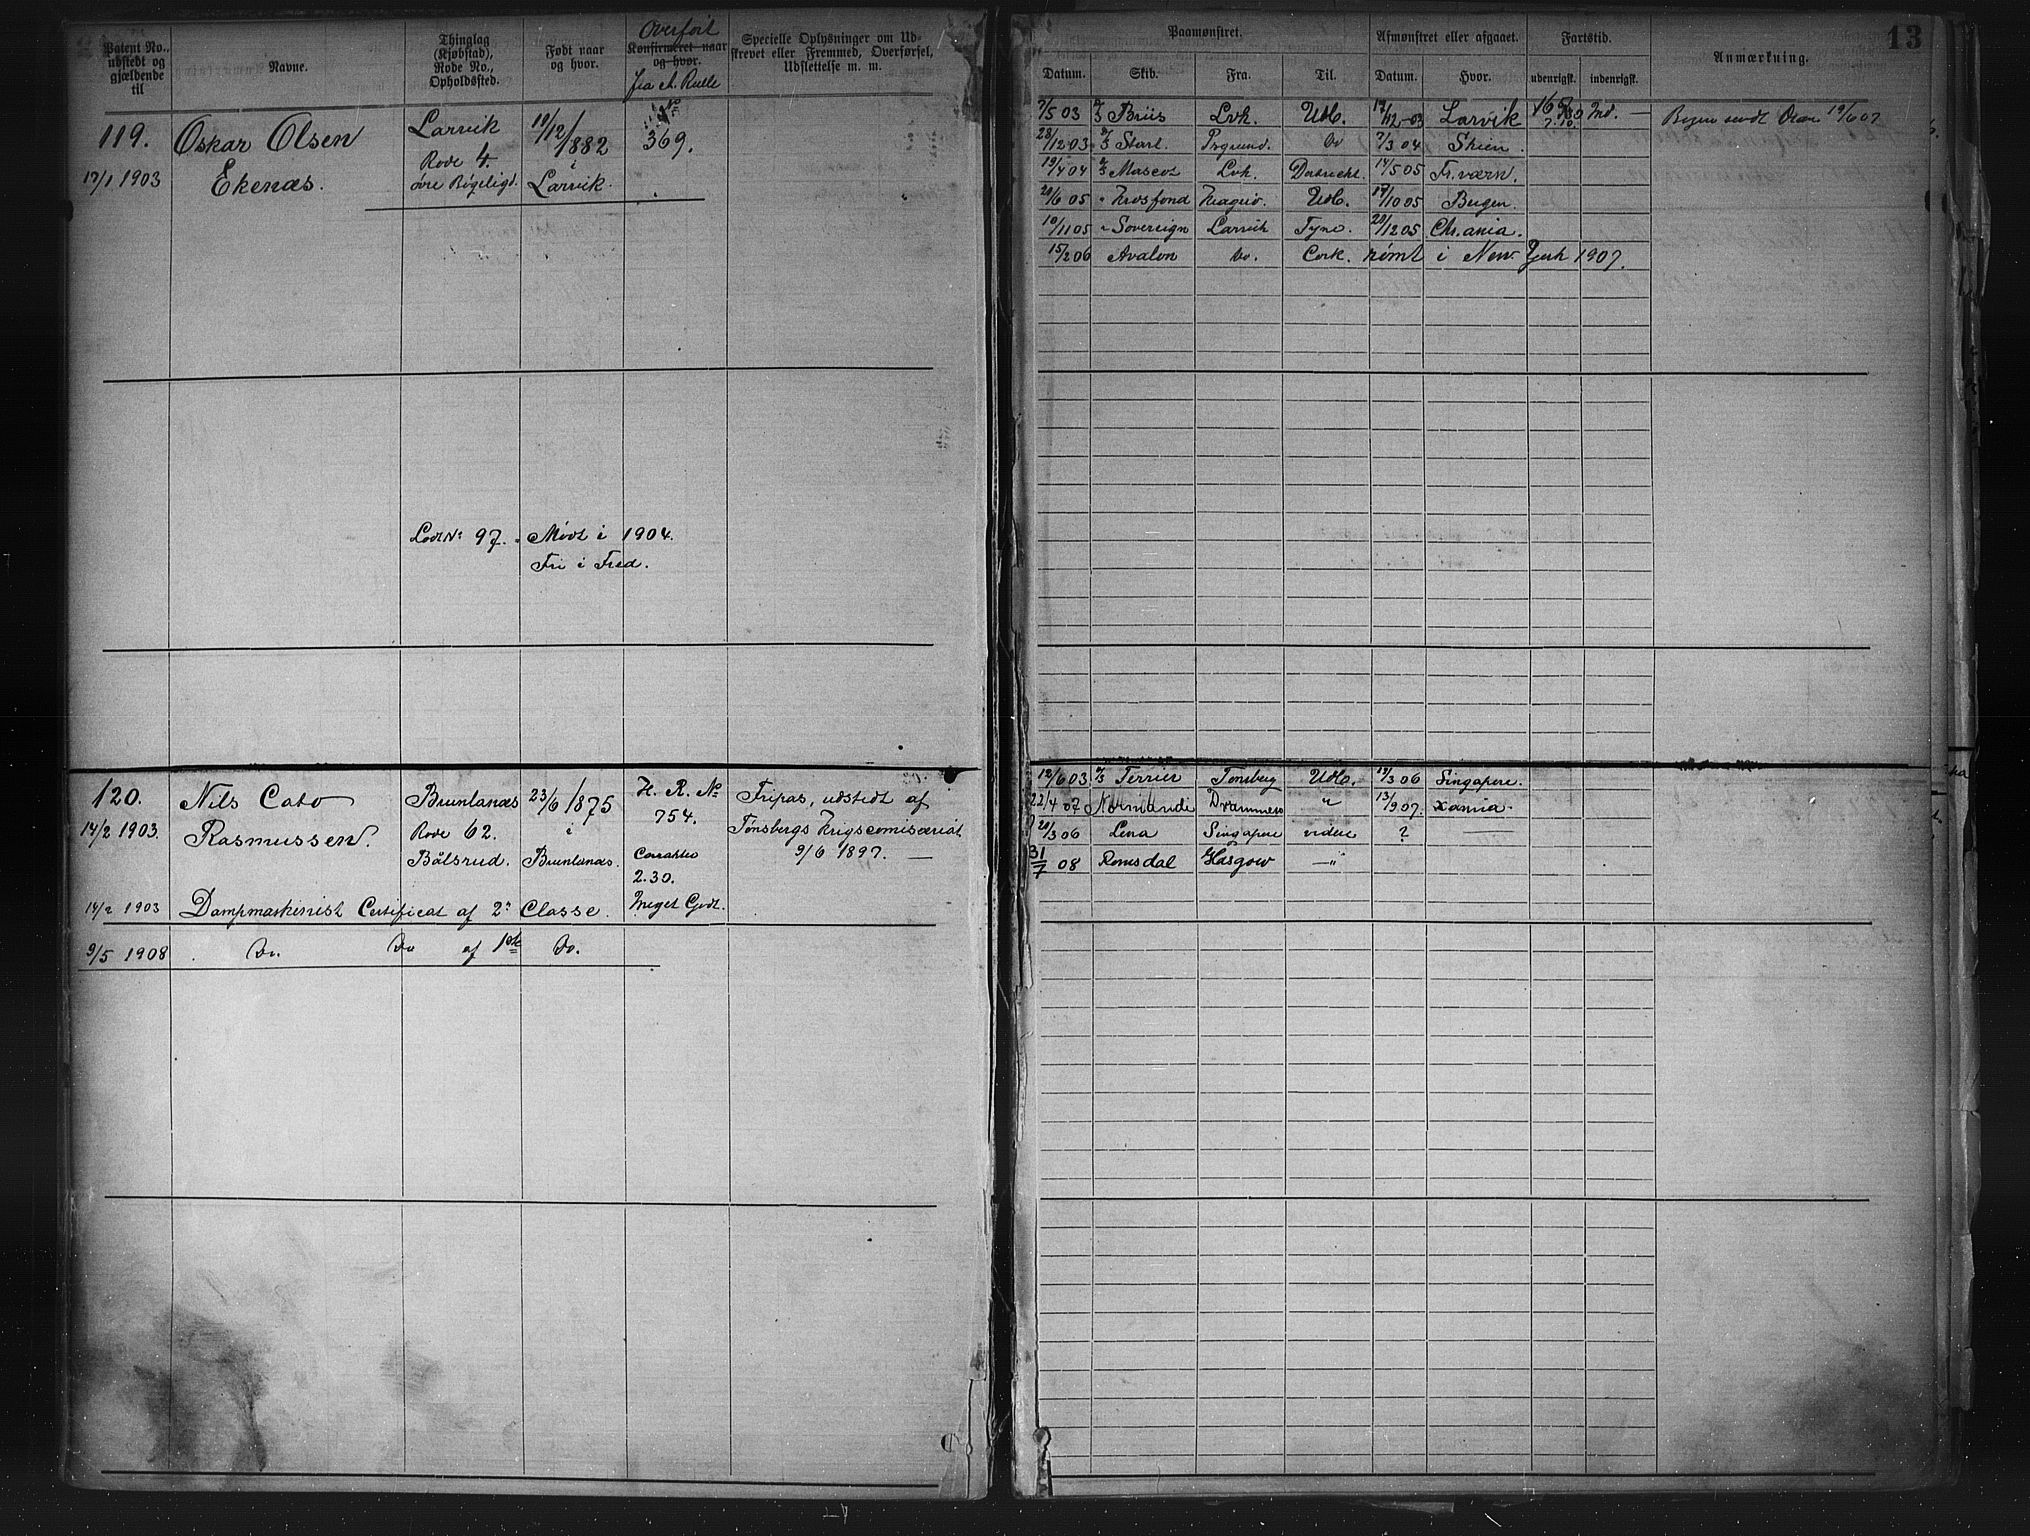 Patent No., udstedt og gjældende til
Navne.
Thinglag (Kjøbstad), Rode No., Opholdssted.
Født naar og hvor.
Overført
Konfirmeret naar og hvor.
fra A. Rulle
Specielle Oplysninger om Udskrevet eller Fremmed, Overførsel, Udslettelse m. m.
119.
17/1 1903
Oskar Olsen
Ekenæs.
Larvik
Rode 4.
øvre Bøgeligt.
10/12/1882
i
Larvik.
No
369.
Lodt No 97. Mødt i 1904.
Fri i Fred.
120.
14/2 1903.
Nils Cato
Rasmussen.
Brunlanæs
Rode 62.
Bålsrud.
23/6/1875
i
Brunlanæs.
H. R. No
754.
Karakter
2.30.
Meget Godt.
Fripas, udstedt af
Tønsbergs Krigscomisæriat
9/6 1897.
14/2 1903 Dampmaskinist Certificat af 2n Classe.
9/5 1908 Do. Do af 1ste Do.
13
Paamønstret.
Afmønstret eller afgaaet.
Fartstid.
Anmærkning.
Datum. Skib. Fra. Til. Datum. Hvor. udenrigsk. indenrigsk.
7/5 03 Briis Lvk. Udl. 17/12-03 Larvik Md. —
28/12 03 Start. Prgrund. Do 7/3 04 Skien.
19/4 04 Mascot Lvk. Dordrecht. 14/5 05 Fr.værn.
20/6 05 " Krosfond Kragerø. Udl. 17/10 05 Bergen.
10/11 05 " Sovereign Larvik Tyne. 20/12 05 Chr.ania.
15/2 06 " Avalon Do. Cork. rømt i New York 1907.
12/6 03 Terrier Tønsberg Udl. 17/3 06 Singapore.
22/4 07 Normandi Drammen " 13/9 07. xania.
20/3 06 Lena Singapore videre ? —
31/7 08 Romsdal Glasgow — " —